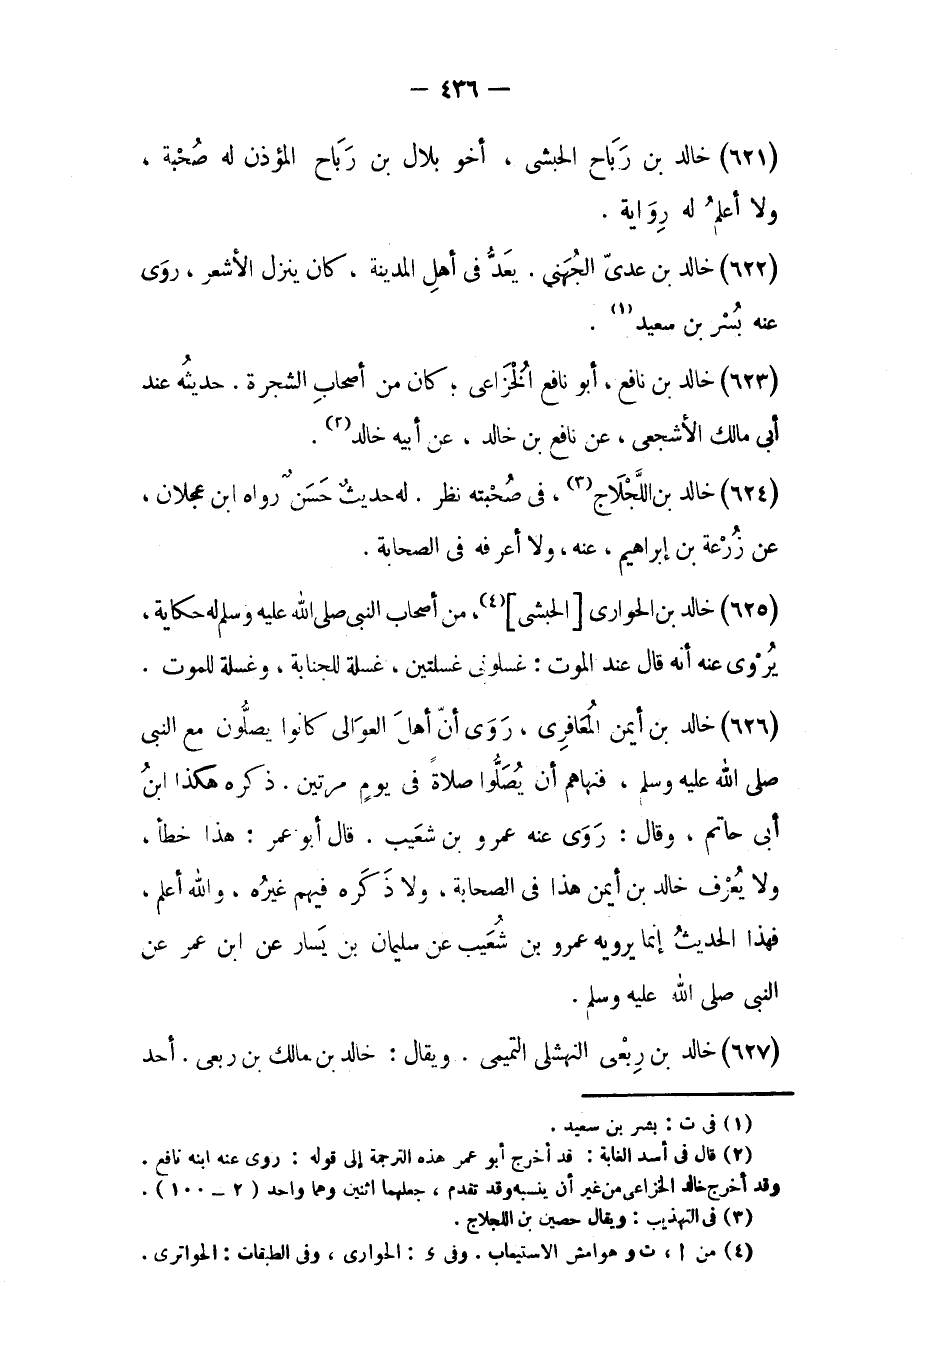 — ٤٣٦ —
(٦٢١) خالد بن رَبَاح الحبشى ، أخو بلال بن رَبَاح المؤذن له صُحْبة ،
ولا أعلمُ له رِوَاية .
(٦٢٢) خالد بن عدىّ الجُهَني . يعَدُّ فى أهلِ المدينة ، كان ينزل الأشعر ، روَى
عنه بُسْر بن سعيد(١) .
(٦٢٣) خالد بن نافع ، أبو نافع الُخْزَاعى ؛ كان من أصحابِ الشجرة . حديثُه عند
أبي مالك الأشجعى ، عن نافع بن خالد ، عن أبيه خالد(٢) .
(٦٢٤) خالد بن اللَّجْلَاج(٣) ، فى صُحْبته نظر . له حديثٌ حَسَنٌ رواه ابن عجلان ،
عن زُرْعة بن إبراهيم ، عنه ، ولا أعرفه فى الصحابة .
(٦٢٥) خالد بن الحوارى [ الحبشى ](٤)، من أصحاب النبى صلى الله عليه وسلم له حكاية ،
يُرْوى عنه أنه قال عند الموت : غسلونى غسلتين ، غسلة للجنابة ، وغسلة للموت .
(٦٢٦) خالد بن أيمن المُعَافرِى ، رَوَى أنّ أهلَ العوَالى كانوا يصلُّون مع النبى
صلى الله عليه وسلم ، فنهاهم أن يُصَلُّوا صلاةً فى يومٍ مرتين . ذكره هكذا ابنُ
أبى حاتم ، وقال : رَوَى عنه عمرو بن شعَيب . قال أبو عمر : هذا خطأ ،
ولا يُعْرْف خالد بن أيمن هذا فى الصحابة ، ولا ذَكَره فيهم غيرُه ، والله أعلم ،
فهذا الحديثُ إنما يرويه عمرو بن شُعَيب عن سليمان بن يَسار عن ابن عمر عن
النبى صلى الله عليه وسلم .
(٦٢٧) خالد بن رِبْعى النهشلى التميمى . ويقال : خالد بن مالك بن ربعى . أحد
(١) فى ت : بشر بن سعيد .
(٢) قال فى أسد الغابة : قد أخرج أبو عمر هذه الترجمة إلى قوله : روى عنه ابنه نافع .
وقد أخرج خالد الخزاعى من غير أن ينسبه وقد تقدم ، جعلهما اثنين وهما واحد ( ٢ – ١٠٠ ) .
(٣) فى التهذيب : ويقال حصين بن اللجلاج .
(٤) من أ ، ت و هوامش الاستيعاب . وفى ى : الحوارى ، وفى الطبقات : الحواترى .